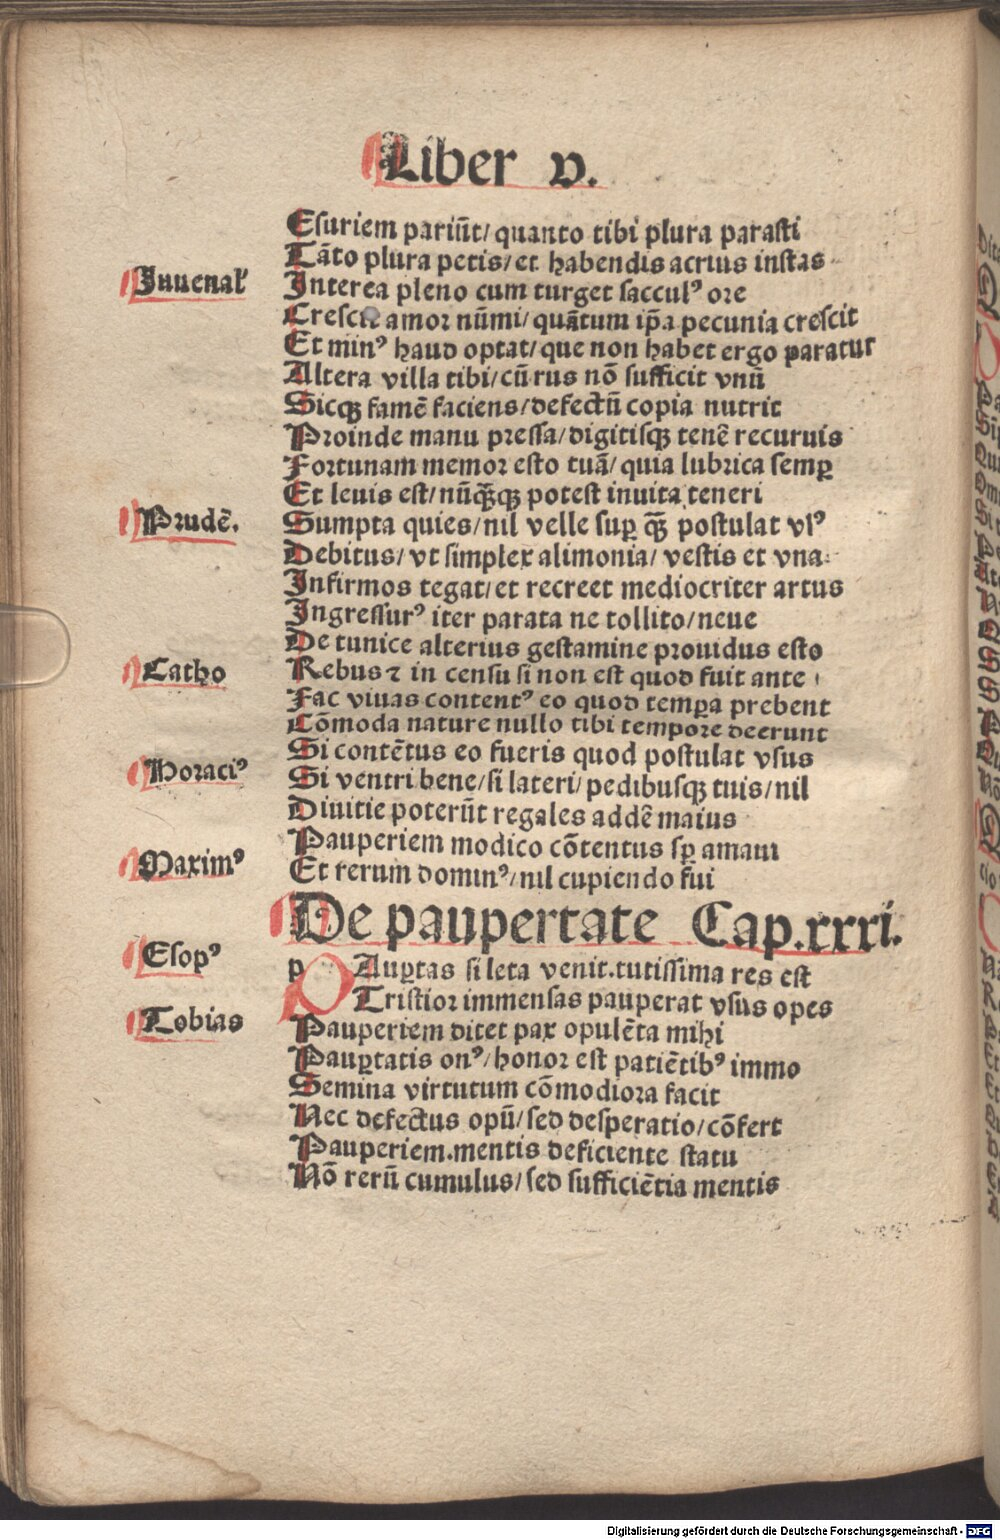 Liber v.
Esuriem pariūt/ quanto tibi plura parasti
Tāto plura petis/ et habendis acrius instas
Iuuenal'
Interea pleno cum turget saccul⁹ ore
Crescit amor nūmi/ quātum ip̄a pecunia crescit
Et min⁹ haud optat/ que non habet ergo paratur
Altera villa tibi/ cū rus nō sufficit vnū
Sicqꝫ famē faciens/ defectū copia nutrit
Proinde manu pressa/ digitisqꝫ tenē recuruis
Fortunam memor esto tuā/ quia lubrica semꝑ
Et leuis est/ nūꝗ̄qꝫ potest inuita teneri
Prudē.
Sumpta quies/ nil velle suꝑ ꝗ̄ postulat vs⁹
Debitus/ vt simplex alimonia/ vestis et vna
Infirmos tegat/ et recreet mediocriter artus
Ingressur⁹ iter parata ne tollito/ neue
De tunice alterius gestamine prouidus esto
Catho
Rebus ⁊ in censu si non est quod fuit ante
Fac viuas content⁹ eo quod temꝑa prebent
Cōmoda nature nullo tibi tempore deerunt
Si contētus eo fueris quod postulat vsus
Horaci⁹
Si ventri bene/ si lateri/ pedibusqꝫ tuis/ nil
Diuitie poterūt regales addē maius
Pauperiem modico cōtentus sꝑ amaui
Maxim⁹
Et rerum domin⁹/ nil cupiendo fui
De paupertate Cap.xxxi.
Esop⁹
p Auꝑtas si leta venit.tutissima res est
Tristior immensas pauperat vsus opes
Tobias
Pauperiem ditet pax opulēta mihi
Pauꝑtatis on⁹/ honor est patiētib⁹ immo
Semina virtutum cōmodiora facit
Nec defectus opū/ sed desperatio/ cōfert
Pauperiem.mentis deficiente statu
Nō rerū cumulus/ sed sufficiētia mentis
Digitalisierung gefördert durch die Deutsche Forschungsgemeinschaft - DFG